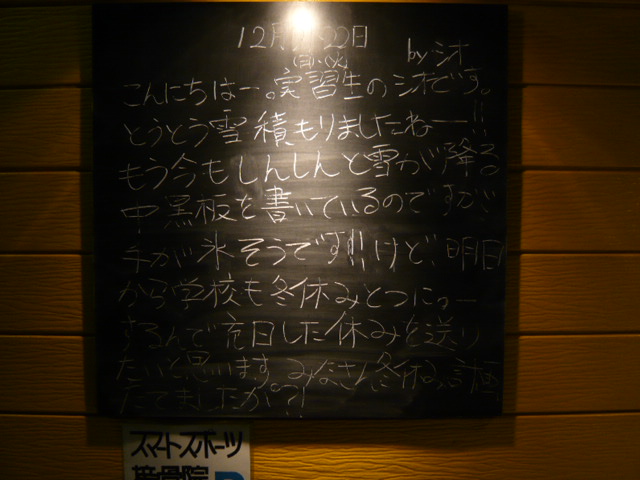 12月 22日
(月・火) byシオ
こんにちはー。実習生のシオです。
とうとう雪積もりましたねー!!
もう今もしんしんと雪が降る
中黒板を書いているのですが
手が氷そうです!!けど、明日
から学校も冬休みとつにゅー
するんで充日した休みを送り
たいと思います。みなさん冬休み計画
たてましたか?!
スマートスポーツ
整骨院